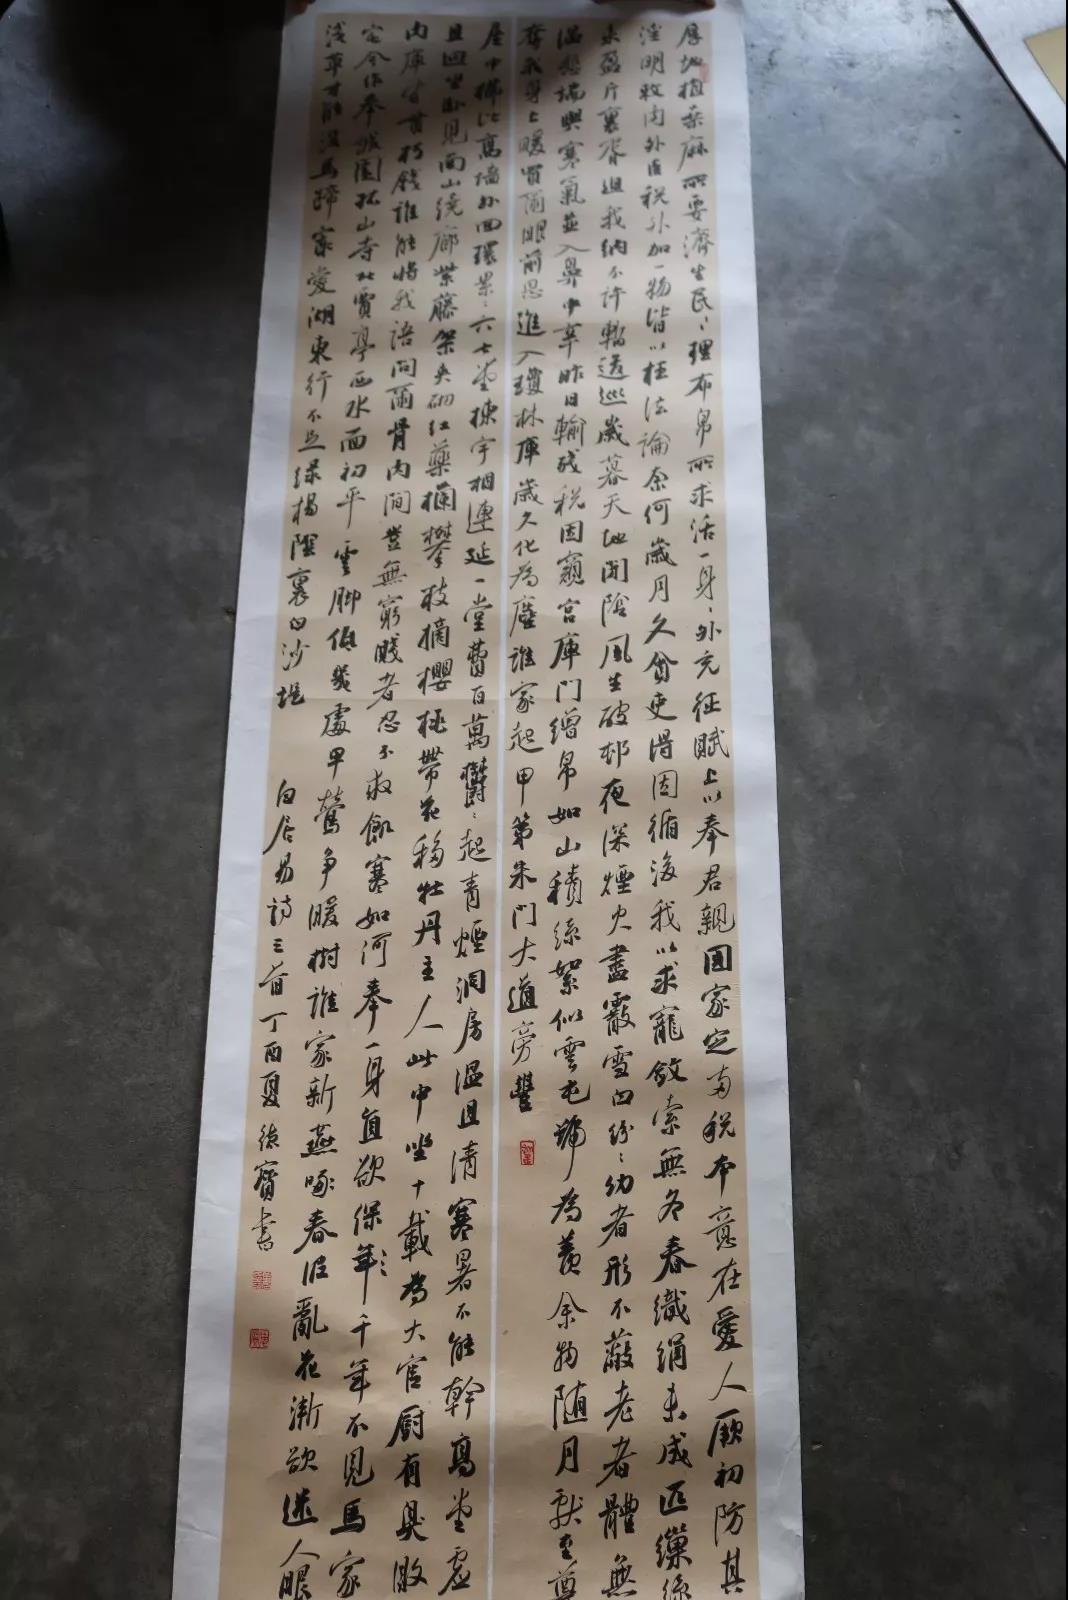 厚地植桑麻所要濟生民ミ理布帛所求活一身ミ外充征賦上以奉君親國家定兩税本意在愛人厥初防其
淫明敕内外臣税外加一物皆以枉法論奈何歲月久貪吏得因循浚我以求寵斂索無冬春織絹未成匹繰絲
未盈斤裏胥迫我納不許暫逡巡歲暮天地閉陰風生破村夜深煙火盡霰雪白紛ミ幼者形不蔽老者體無
温悲喘與寒氣並入鼻中辛昨日輸殘税因窺官庫門繒帛如山積絲絮似雲屯號為羨余物隨月獻至尊
奪我身上暖買爾眼前恩進入瓊林庫歲久化為塵誰家起甲第朱門大道旁豐
屋中櫛比高墻外回環纍ミ六七堂棟宇相連延一堂費百萬鬱ミ起青煙洞房温且清寒暑不能幹高堂虛
且迥坐臥見南山繞廊紫藤架夾砌紅藥欄攀枝摘櫻桃帶花移牡丹主人此中坐十載為大官厨有臭敗
肉庫有貫朽錢誰能將我語問爾骨肉間豈無窮賤者忍不救飢寒如何奉一身直欲保千年不見馬家
宅今作奉誠園孤山寺北賈亭西水面初平雲脚低幾處早鶯爭暖樹誰家新燕啄春泥亂花漸欲迷人眼
淺草才能没馬蹄最愛湖東行不足綠楊陰裏白沙堤
白居易詩三首丁酉夏德寶書